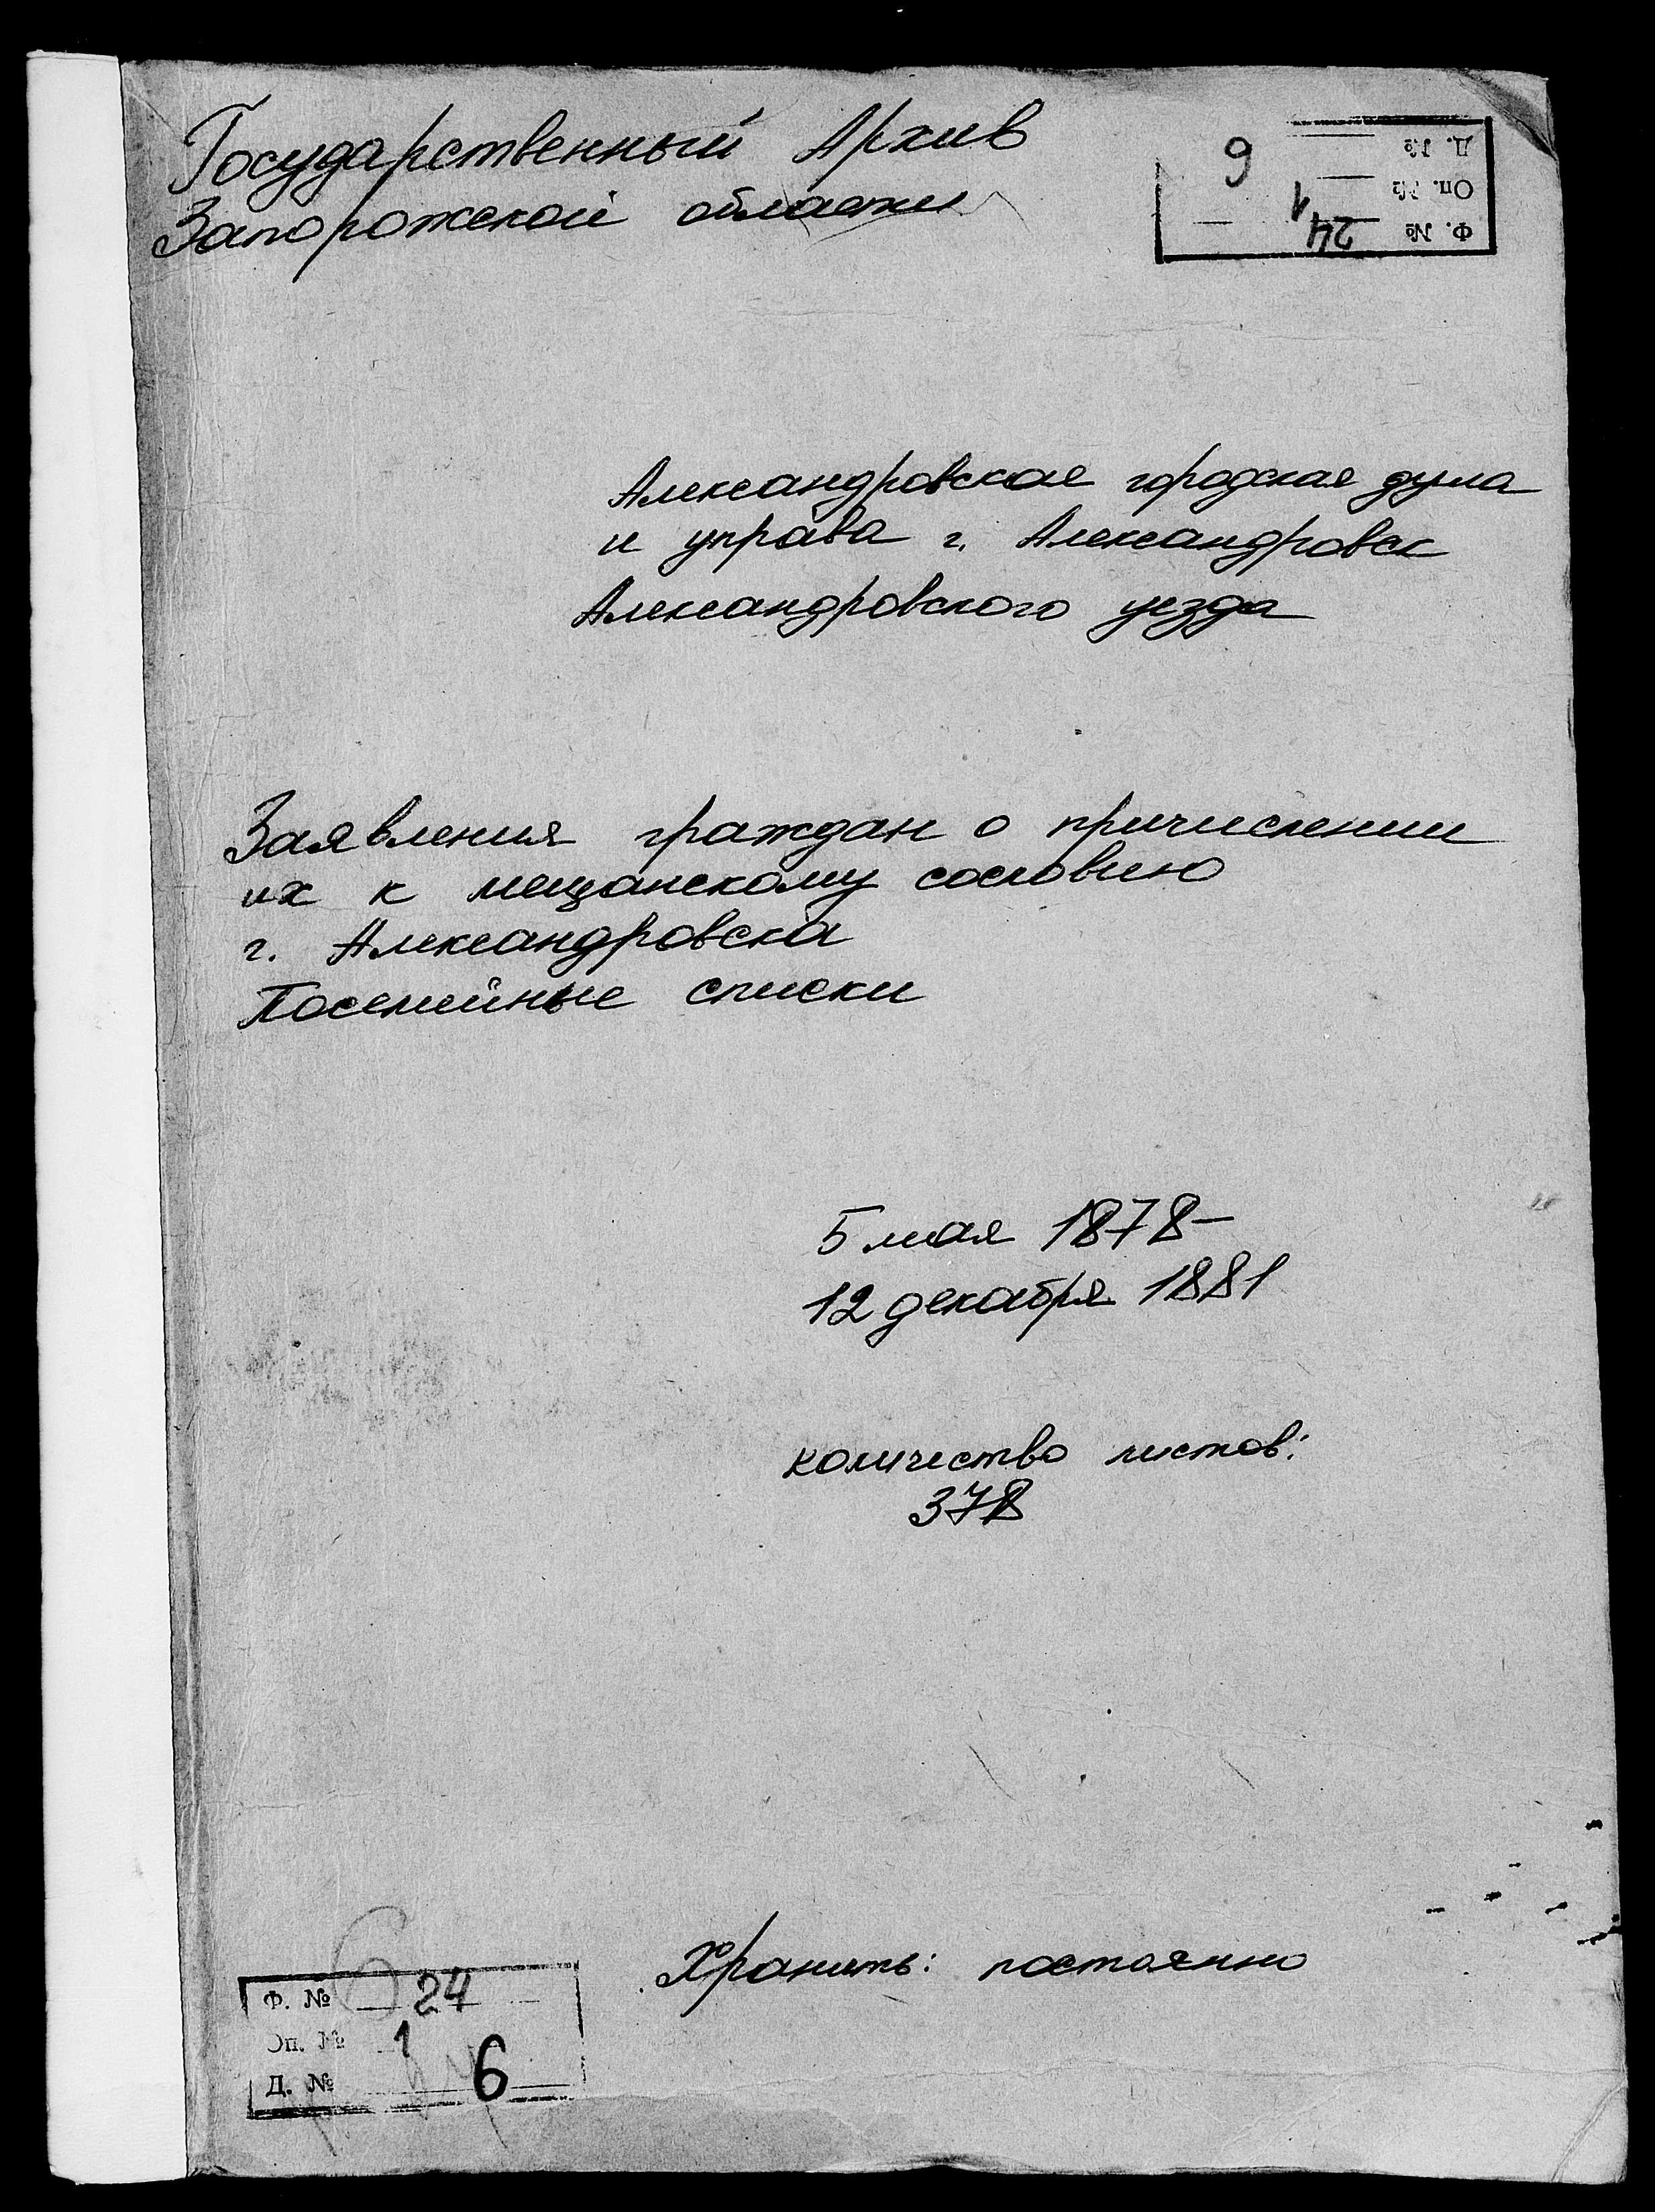 Государственный Архив
Запорожской области
Д. № 6
Оп. № 1
Ф. № 24
Александровская городская дума
и управа г. Александровск
Александровского уезда
Заявления граждан о причислении
их к мещанскому сословию
г. Александровска
Посемейные списки
5 мая 1878 –
12 декабря 1881
количество листов:
378
Хранить: постоянно
Ф. № 24
Оп. № 1
Д. № 6